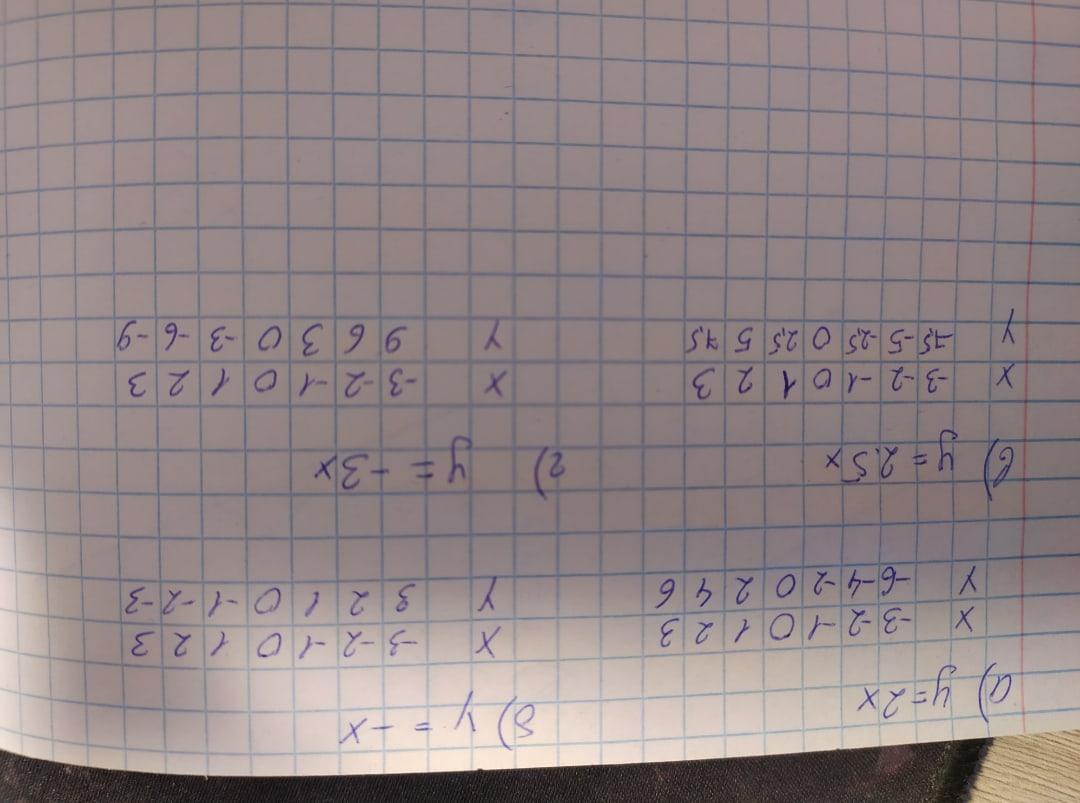 а) y=2x
X -3 -2 -1 0 1 2 3
Y -6 -4 -2 0 2 4 6
б) y = -x
X -3 -2 -1 0 1 2 3
Y 3 2 1 0 -1 -2 -3
в) y=2.5x
X -3 -2 -1 0 1 2 3
Y -7,5 -5 -2,5 0 2,5 5 7,5
г) y = -3x
X -3 -2 -1 0 1 2 3
Y 9 6 3 0 -3 -6 -9